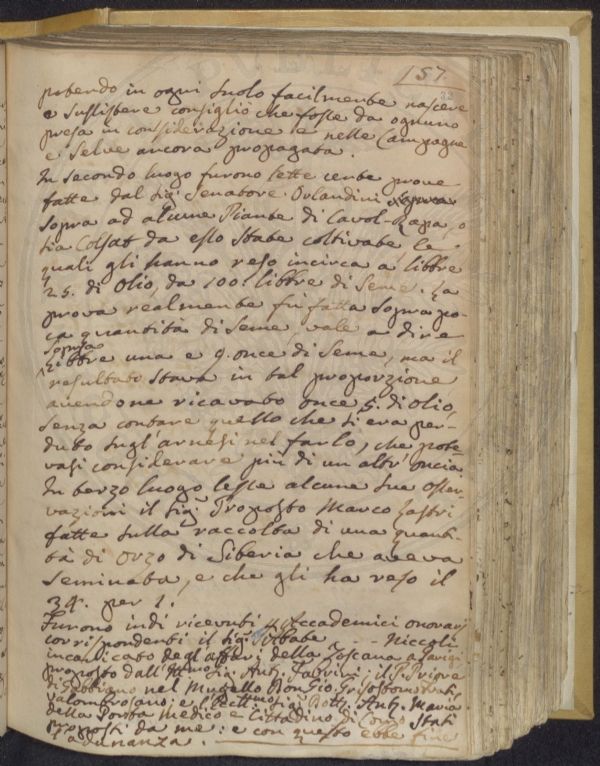 157
potendo in ogni suolo facilmente nascere
e sussistere consigliò che fosse da ognuno
presa in considerazione e nelle Campagne
e Selve ancora propagata.
In secondo luogo furono lette certe prove
fatte dal Sig. Senatore Orlandini
sopra ad alcune Piante di Cavol-Rapa, o
sia Colsat da esso state coltivate le
quali gli hanno reso incirca a' libbre
25. di olio, da 100. libbre di seme. La
prova realmente fù fatta sopra po-
ca quantità di seme, vale a dire
sopra
libbre una e 9. once di seme, ma il
resultato stava in tal proporzione
avendone ricavato once 5. di olio,
senza contare quello che si era per-
duto sugl'arnesi nel farlo, che pote-
vasi considerare più di un altr'oncia
In terzo luogo lesse alcune sue osser-
vazioni il Sig. Proposto Marco Lastri
fatte sulla raccolta di una quanti-
tà di Orzo di Siberia che aveva
seminata, e che gli ha reso il
34. per 1.
Furono indi ricevuti 4 Accademici onorarj
corrispondenti il Sig. Abate - - - Niccoli
incaricato degl'affari della Toscana a Parigi
proposto dall' Sig. Ant. Fabrini; il P. Priore
di Gabbiano nel Mugello Don Gio. Grisostomo
Valombrosano; e l' Sig. Dott. Ant. Maria
della Porta Medico e Cittadino di Como stati
proposti da me: e con questo ebbe fine
l'adunanza.